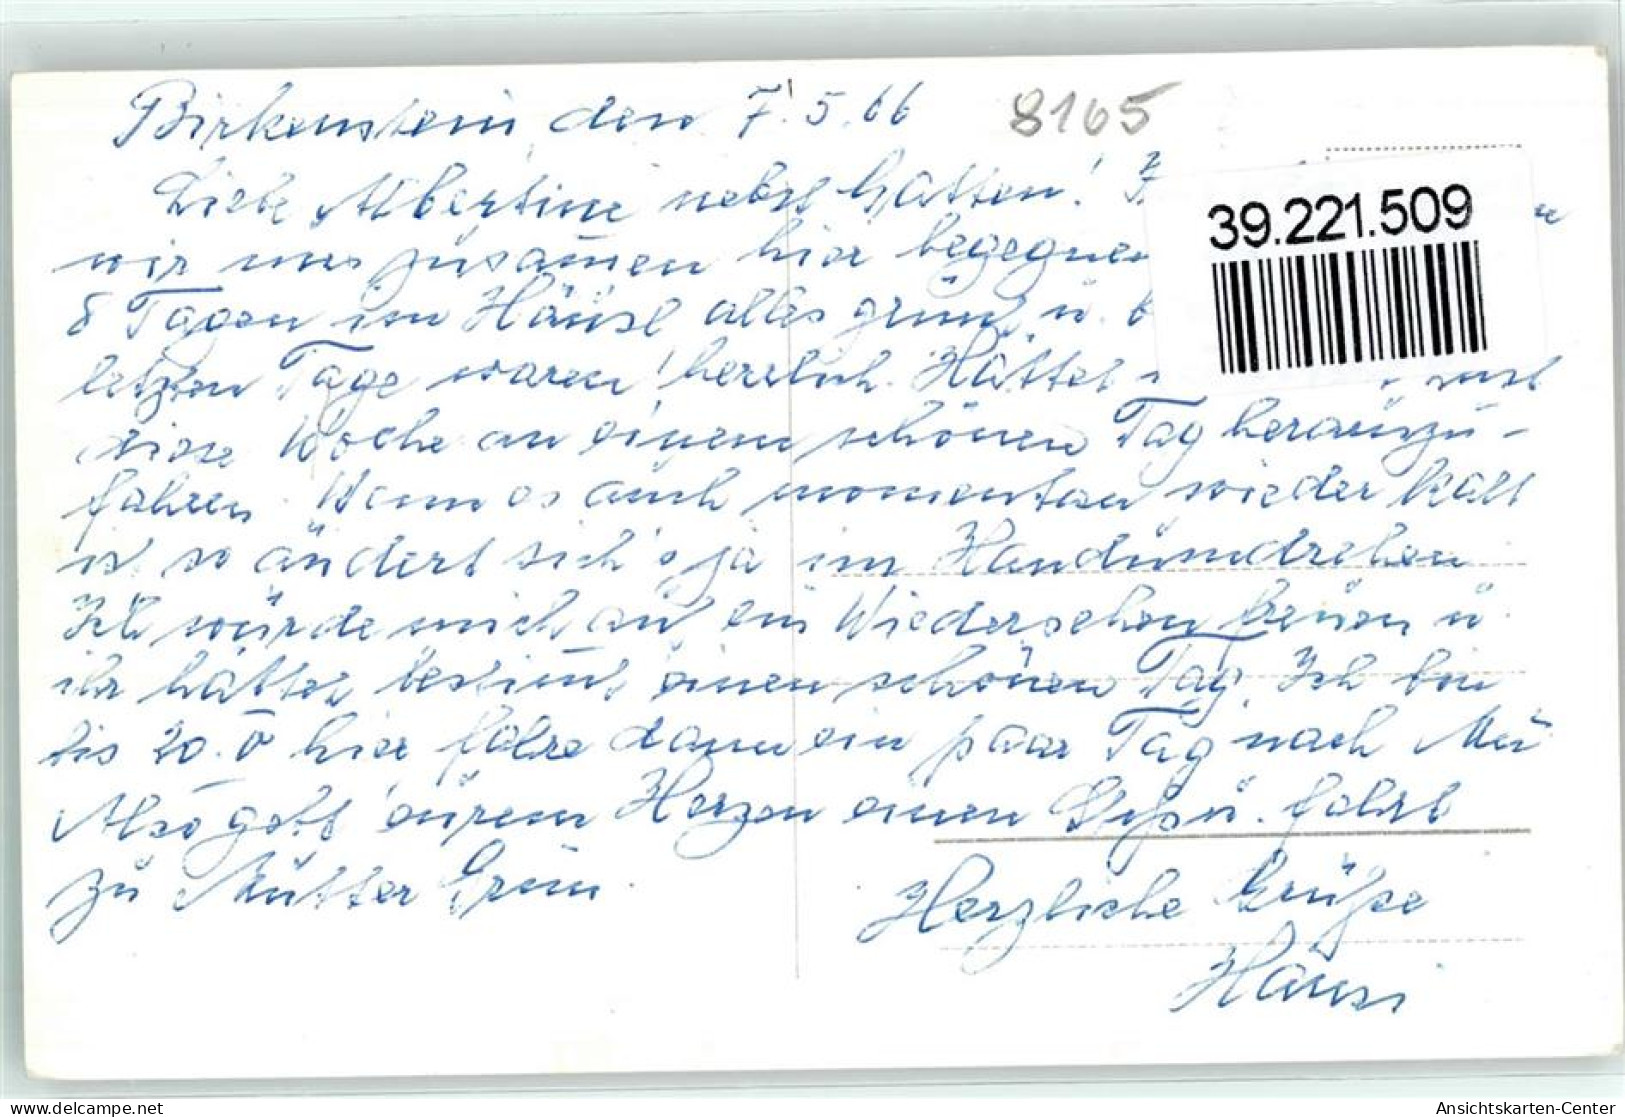 Birkenstein, den 7.5.66
8165
Liebe Albertine nebst Gatten!
39.221.509
wir uns zusamen hier begegnen
8 Tagen im Häusl alles grün u.
letzten Tage waren herrlich. Hättet
diese Woche an einem schönen Tag herauszu-
fahren. Wenn es auch momentan wieder kalt
ist so ändert sich's ja im Handumdrehen
Ich würde mich auf ein Wiedersehen freuen u.
ihr hättet bestimt einen schönen Tag. Ich bin
bis 20.V hier fahre dann ein paar Tag nach Mü
Also gebt eurem Herzen einen Stoß u. fahrt
zu Mutter Grün.
Herzliche Grüße
Hansi
Ansichtskarten-Center
www.delcampe.net